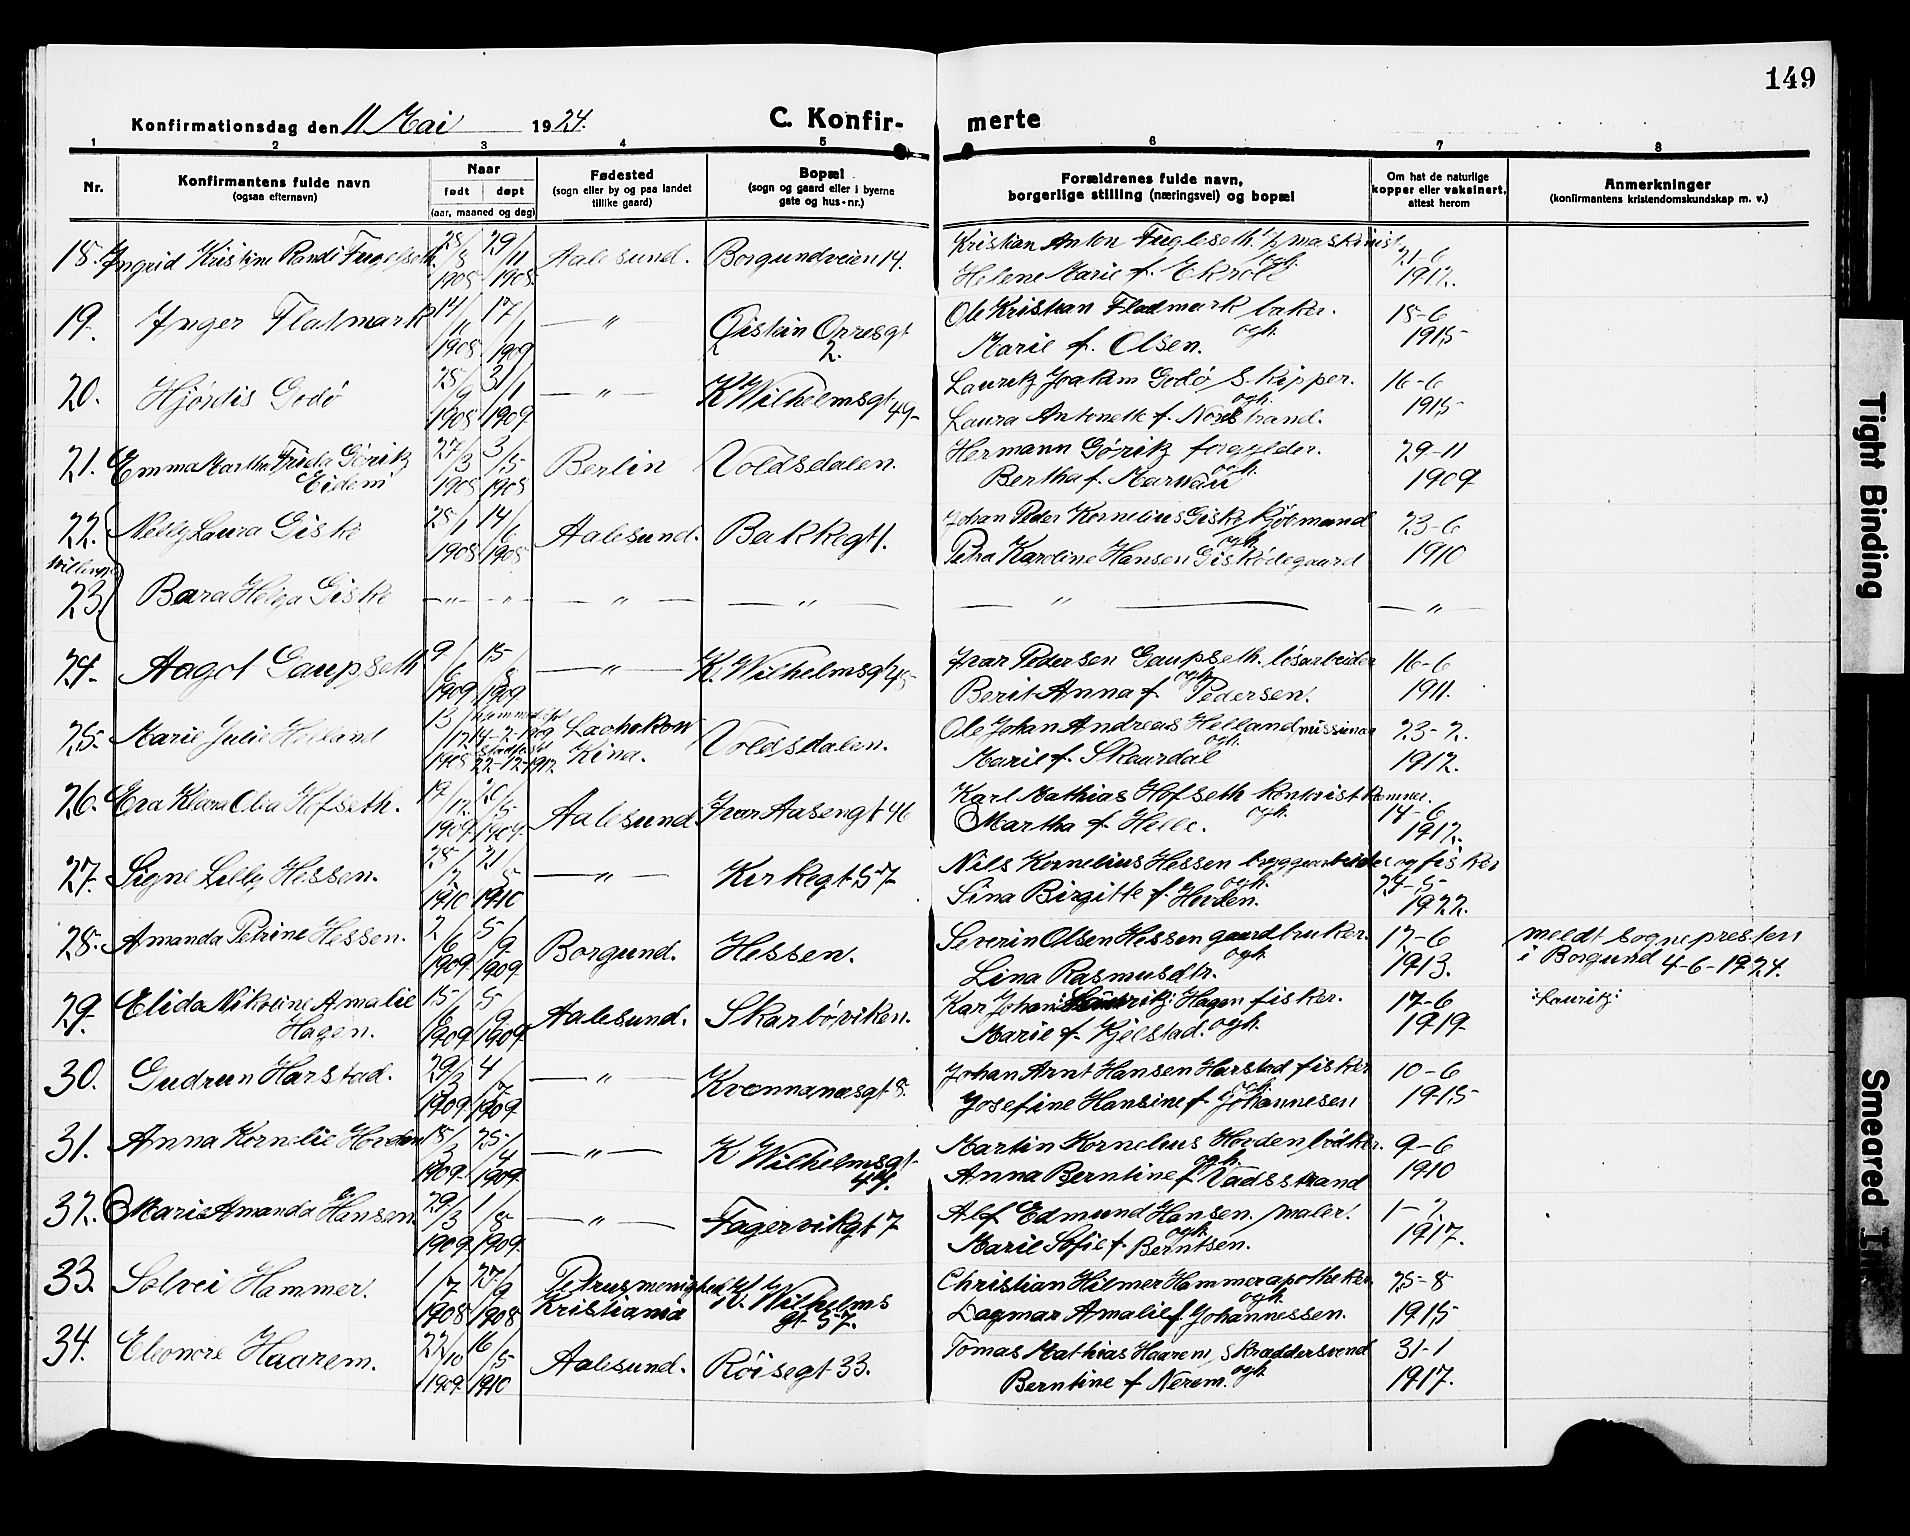 149
Konfirmationsdag den 11 Mai 1924.
C. Konfir- merte
1 2 3 4 5 6 7 8
Nr.
Konfirmantens fulde navn
(ogsaa efternavn)
Naar
født døpt
(aar, maaned og dag)
Fødested
(sogn eller by og paa landet
tillike gaard)
Bopæl
(sogn og gaard eller i byerne
gate og hus-nr.)
Forældrenes fulde navn,
borgerlige stilling (næringsvei) og bopæl
Om hat de naturlige
kopper eller vaksinert,
attest herom
Anmerkninger
(konfirmantens kristendomskundskap m. v.)
18. Ingrid Kristine Randi Fugelseth 29/11 1908. Aalesund. Borgundveien 14. Kristian Anton Fugleseth, maskinist
ogh. Helene Marie f. 21-6 1912.
19. Inger Flatmark 14/11 1908 17/1 1909 — " — Øistein Orresgt 2. Ole Kristian Fladmark baker.
ogh. Marie f. Olsen. 18-6 1915
20. Hjørdis Godø 28/9 1908 31/1 1909 — " — K Wilhelmsgt 49- Lauritz Joakim Godø Skipper.
ogh. Laura Antonette f. Nordstrand. 16-6 1915
21. Emma Martha Frida Gøritz 27/3 1908 3/5 1908 Berlin Voldsdalen. Hermann Gøritz forgylder.
Eidem ogh. Bertha f. 29-11 1909
22. Nelly Laura Giske 28/1 1908 14/6 1908 Aalesund. Bakkegt 1. Johan Peder Kornelius Giske kjøbmand
ogh. Petra Karoline Hansen Giskødegaard 23-6 1910
tvillinger
23 Bara Helga Giske — " — — " — — " — — " — — " — — " —
24. Aagot Gaupseth 9/6 1909 15/8 1909 — " — K. Wilhelmsgt 45 Ivar Pedersen Gaupseth løsarbeider
ogh. Berit Anna f. Pedersen. 16-6 1911.
25. Marie Julie Helland 13/12 1908 14-2-1909 22-12-1912. Laohokow
Kina. Voldsdalen. Ole Johan Andreas Helland missionær
ogh. Marie f. Skaardal 23-2. 1912.
26. Eva Klara Olia Hofseth. Aalesund. Ivar Aasengt 46 Karl Mathias Hofseth
ogh. Martha f. Helle. 14-6 1912.
27. Signe Lilly Hessen. 1910 21/5 1910 — " — Kirkegt 57 Nils Kornelius Hessen bryggearbeider og fisker
ogh. Sina Birgitte f. Hovden. 24-5 1922.
28. Amanda Petrine Hessen. 2/6 1909 5/9 1909 Borgund. Hessen. Severin Olsen Hessen gaardbruker.
ogh. Lina Rasmusdtr. 17-6 1913. meldt sognepresten
i Borgund 4-6-1924.
29. Elida Nikoline Amalie
Hagen. 15/6 1909 5/9 1909 Aalesund. Skarbøviken. Kar Johan Lauritz: Hagen fisker.
Marie f. Kjelstad. ogh. 17-6 1919. :Lauritz:
30. Gudrun Harstad. 29/3 1909. 4/7 1909. — " — Kvennanæsgt 8. Johan Arnt Hansen Harstad fisker
ogh. Josefine Hansine f. Johannesen 10-6 1915
31. Anna Kornelie Hovden 18/3 1909. 25/4 1909. — " — K Wilhelmsgt
44. Martin Kornelius Hovden bødker.
ogh. Anna Berntine f. Vadsstrand 9-6 1910
32. Marie Amanda Hansen 29/3 1909. 1/8 1909. — " — Fagervikgt 7 Alf Edmund Hansen, maler.
ogh. Marie Sofie f. Berntsen. 1-2 1917.
33. Solvei Hammer. 1/7 1908 27/9 1908 Petrus menighed
Kristiania K. Wilhelms
gt. 57. Christian Hilmer Hammer apotheker
ogh. Dagmar Amalie f. Johannessen. 25-8 1915
34. Eleonore Haarem. 22/10 1909. 16/5 1910 Aalesund. Røisegt 33. Tomas Mathias Haarem, skræddersvend
Berntine f. Nerem. ogh. 31-1 1917.
Tight Binding
Smeared Ink